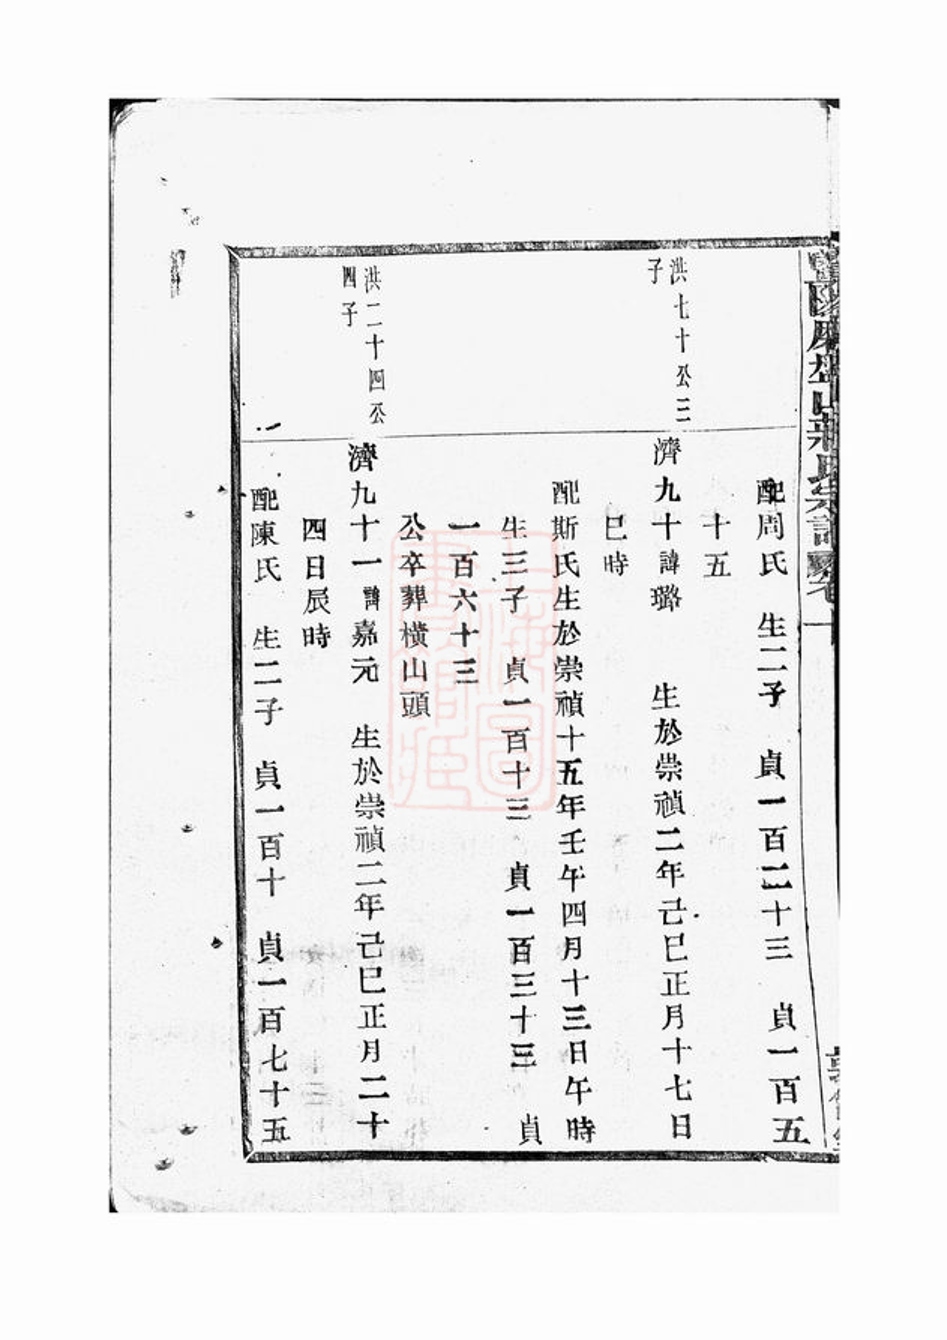 配周氏　生二子　貞一百二十三　貞一百五
十五
洪七十公三
子
濟九十諱璐　生於崇禎二年己巳正月十七日
巳時
配斯氏生於崇禎十五年壬午四月十三日午時
生三子　貞一百十三　貞一百三十三　貞
一百六十三
公卒葬橫山頭
洪二十四公
四子
濟九十一諱嘉元　生於崇禎二年己巳正月二十
四日辰時
配陳氏　生二子　貞一百十　貞一百七十五
上海圖書館藏